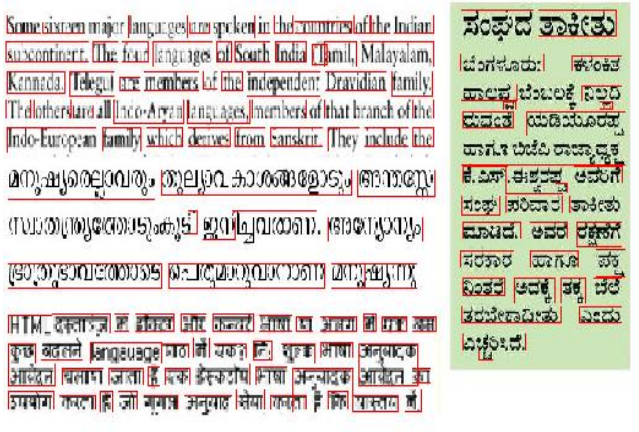 Some sixteen major languages are spoken in the countries of the Indian
subcontinent. The four languages of South India Tamil, Malayalam,
Kannada, Telegui are members of the independent Dravidian family.
The others are all Indo-Aryan languages, members of that branch of the
Indo-European family which derives from Sanskrit. They include the
മനുഷ്യരെല്ലാവരും തുല്യാവകാശങ്ങളോടും അന്തസ്സോ
സ്വാതന്ത്ര്യത്തോടുംകൂടി ജനിച്ചവരാണ്. അന്യോന്യം
ഭ്രാതൃഭാവത്തോടെ പെരുമാറുവാനാണ് മനുഷ്യന്ന്
HTML दस्तावेज़ में और का में
कुछ बदलने language पाठ में गूगल भाषा अनुवादक
आवेदन चलाया जाता है एक डेस्कटॉप भाषा अनुवादक आवेदन का
उपयोग करता है जो गूगल अनुवाद सेवा करता है कि वास्तव में
ಸಂಘದ ತಾಕೀತು
ಬೆಂಗಳೂರು: ಕಳಂಕಿತ
ಹಾಲಪ್ಪ ಬೆಂಬಲಕ್ಕೆ ನಿಲ್ಲದಿ
ರುವಂತೆ ಯಡಿಯೂರಪ್ಪ
ಹಾಗೂ ಬಿಜೆಪಿ ರಾಜ್ಯಾಧ್ಯಕ್ಷ
ಕೆ.ಎಸ್.ಈಶ್ವರಪ್ಪ ಅವರಿಗೆ
ಸಂಘ ಪರಿವಾರ ತಾಕೀತು
ಮಾಡಿದೆ. ಅವರ ರಕ್ಷಣೆಗೆ
ಸರಕಾರ ಹಾಗೂ ಪಕ್ಷ
ನಿಂತರೆ ಅದಕ್ಕೆ ತಕ್ಕ ಬೆಲೆ
ತೆರಬೇಕಾದೀತು ಎಂದು
ಎಚ್ಚರಿಸಿದೆ.